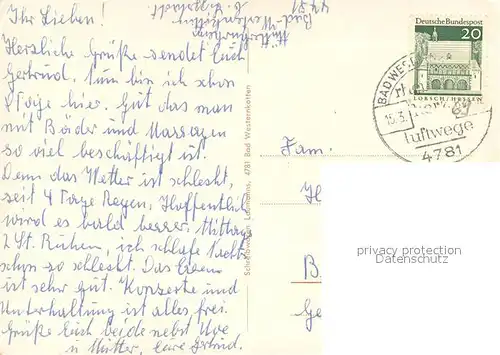 Ihr Lieben!
Herzliche Grüße sendet Euch
Gertrud. Nun bin ich schon
8 Tage hier. Gut das man
mit Bäder und Massagen
so viel beschäftigt ist.
Denn das Wetter ist schlecht,
seit 4 Tage Regen. Hoffentlich
wird es bald besser. Mittags
2 St. Ruhen, ich schlafe Nachts
schon so schlecht. Das Essen
ist sehr gut. Konzerte und
Unterhaltung ist alles frei.
Grüße Euch beide nebst Uwe
u Mutter, Eure Gertrud.
4781 Bad Westernkotten
Deutsche Bundespost
20
LORSCH/HESSEN
BAD WES
15.3.
Herz
luftwege
4781
Fam.
H
B
Ge
privacy protection
Datenschutz